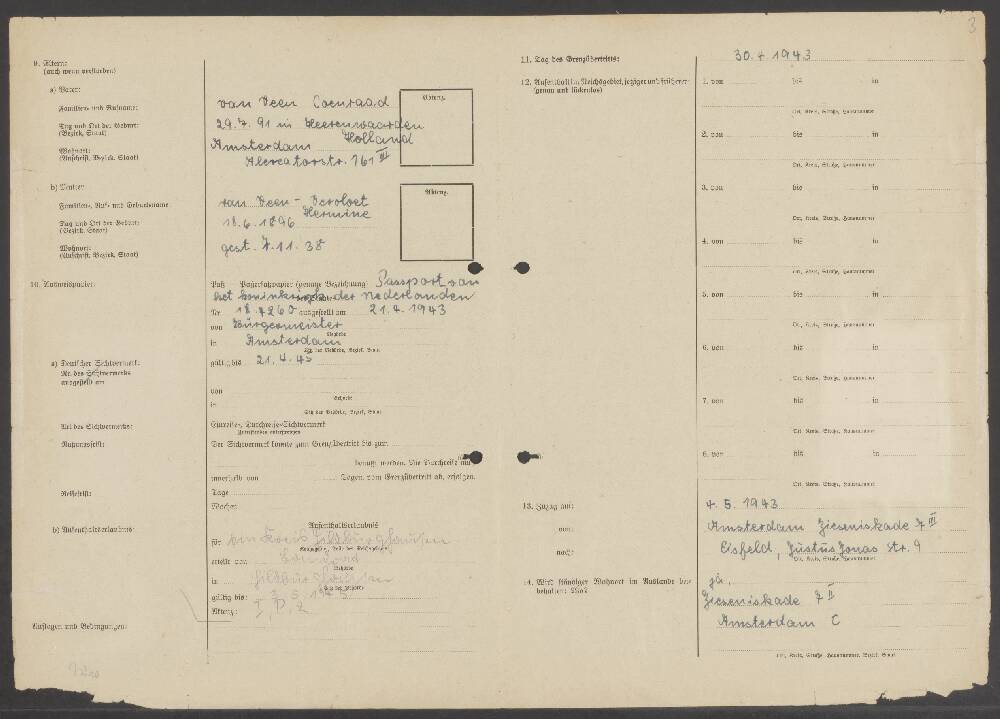 3
9. Eltern:
(auch wenn verstorben)
a) Vater:
Familien- und Rufname:
van Veen Coenraad
Aktenz.
Tag und Ort der Geburt:
(Bezirk, Staat)
29.7.91 in Heerenwaarden
Holland
Wohnort:
(Anschrift, Bezirk, Staat)
Amsterdam
Mercatorstr. 161 III
b) Mutter:
Familien-, Ruf- und Geburtsname
van Veen -
Hermine
Aktenz.
Tag und Ort der Geburt:
(Bezirk, Staat)
18.6.1896
Wohnort:
(Anschrift, Bezirk, Staat)
gest. 7.11.38
10. Ausweispapier:
Paß Paßersatzpapier (genaue Bezeichnung) Passport van
het koninkrijk der Nederlanden
Nr. ausgestellt am 21.4.1943
von Bürgermeister
Behörde
in Amsterdam
Sitz der Behörde, Bezirk, Staat
gültig bis 21.4.45
a) Deutscher Sichtvermerk:
Nr. des Sichtvermerks
ausgestellt am
von
Behörde
in
Sitz der Behörde, Bezirk, Staat
Art des Sichtvermerks:
Einreise-, Durchreise-Sichtvermerk
Zutreffendes unterstreichen
Nutzungsfrist:
Der Sichtvermerk konnte zum Grenzübertritt bis zum
benutzt werden. Die Durchreise muß
innerhalb von Tagen, vom Grenzübertritt ab, erfolgen.
Reisefrist:
Tage
Wochen
b) Aufenthaltserlaubnis:
Aufenthaltserlaubnis
für den Kreis Hildburghausen
erteilt von Landrat
Behörde
in Hildburghausen
Sitz der Behörde
gültig bis:
Aktenz.:
Auflagen und Bedingungen:
11. Tag des Grenzübertritts:
30.4.1943
12. Aufenthalt im Reichsgebiet, jetziger und früherer
(genau und lückenlos)
1. von bis in
Ort, Kreis, Straße, Hausnummer
2. von bis in
Ort, Kreis, Straße, Hausnummer
3. von bis in
Ort, Kreis, Straße, Hausnummer
4. von bis in
Ort, Kreis, Straße, Hausnummer
5. von bis in
Ort, Kreis, Straße, Hausnummer
6. von bis in
Ort, Kreis, Straße, Hausnummer
7. von bis in
Ort, Kreis, Straße, Hausnummer
8. von bis in
Ort, Kreis, Straße, Hausnummer
13. Zuzug am:
4.5.1943
von:
Amsterdam Zieseniskade 7 III
nach:
Eisfeld, Justus Jonas Str. 9
Ort, Kreis, Straße, Hausnummer
14. Wird ständiger Wohnort im Auslande bei-
behalten? Wo?
ja,
Zieseniskade 7 II
Amsterdam C
Ort, Kreis, Straße, Hausnummer, Bezirk, Staat